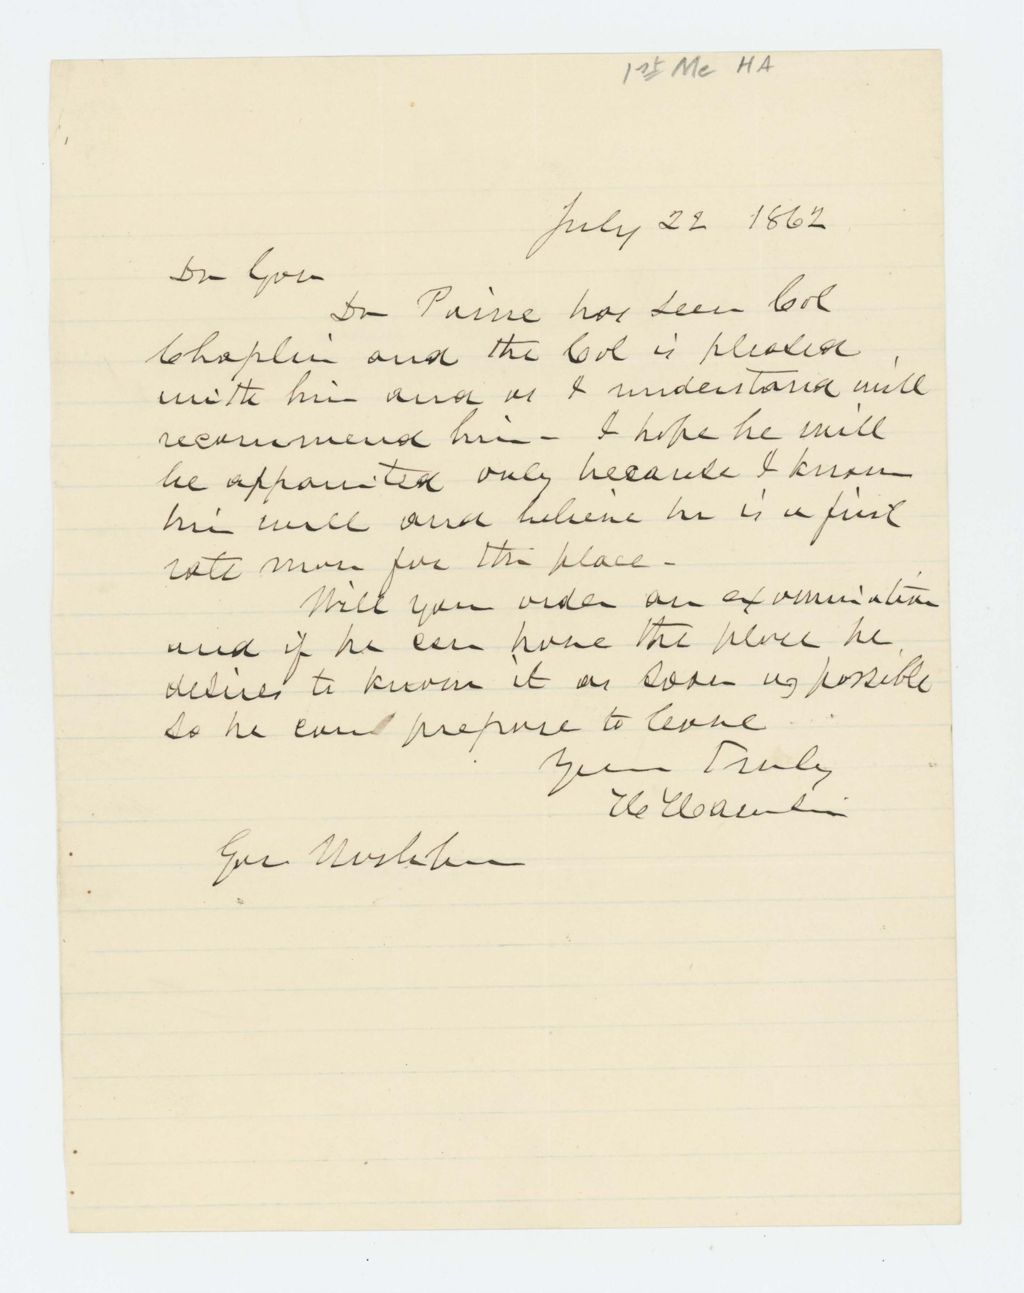 1st Me HA
July 22 1862
Dr Gov
Dr Paine has seen Col
Chaplin and the Col is pleased
with him and as I understand will
recommend him - I hope he will
be appointed only because I know
him well and believe he is a first
rate man for the place -
Will you order an examination
and if he can have the place he
desires to know it as soon as possible
so he can prepare to leave
Yours Truly
H Hamlin
Gov Washburn